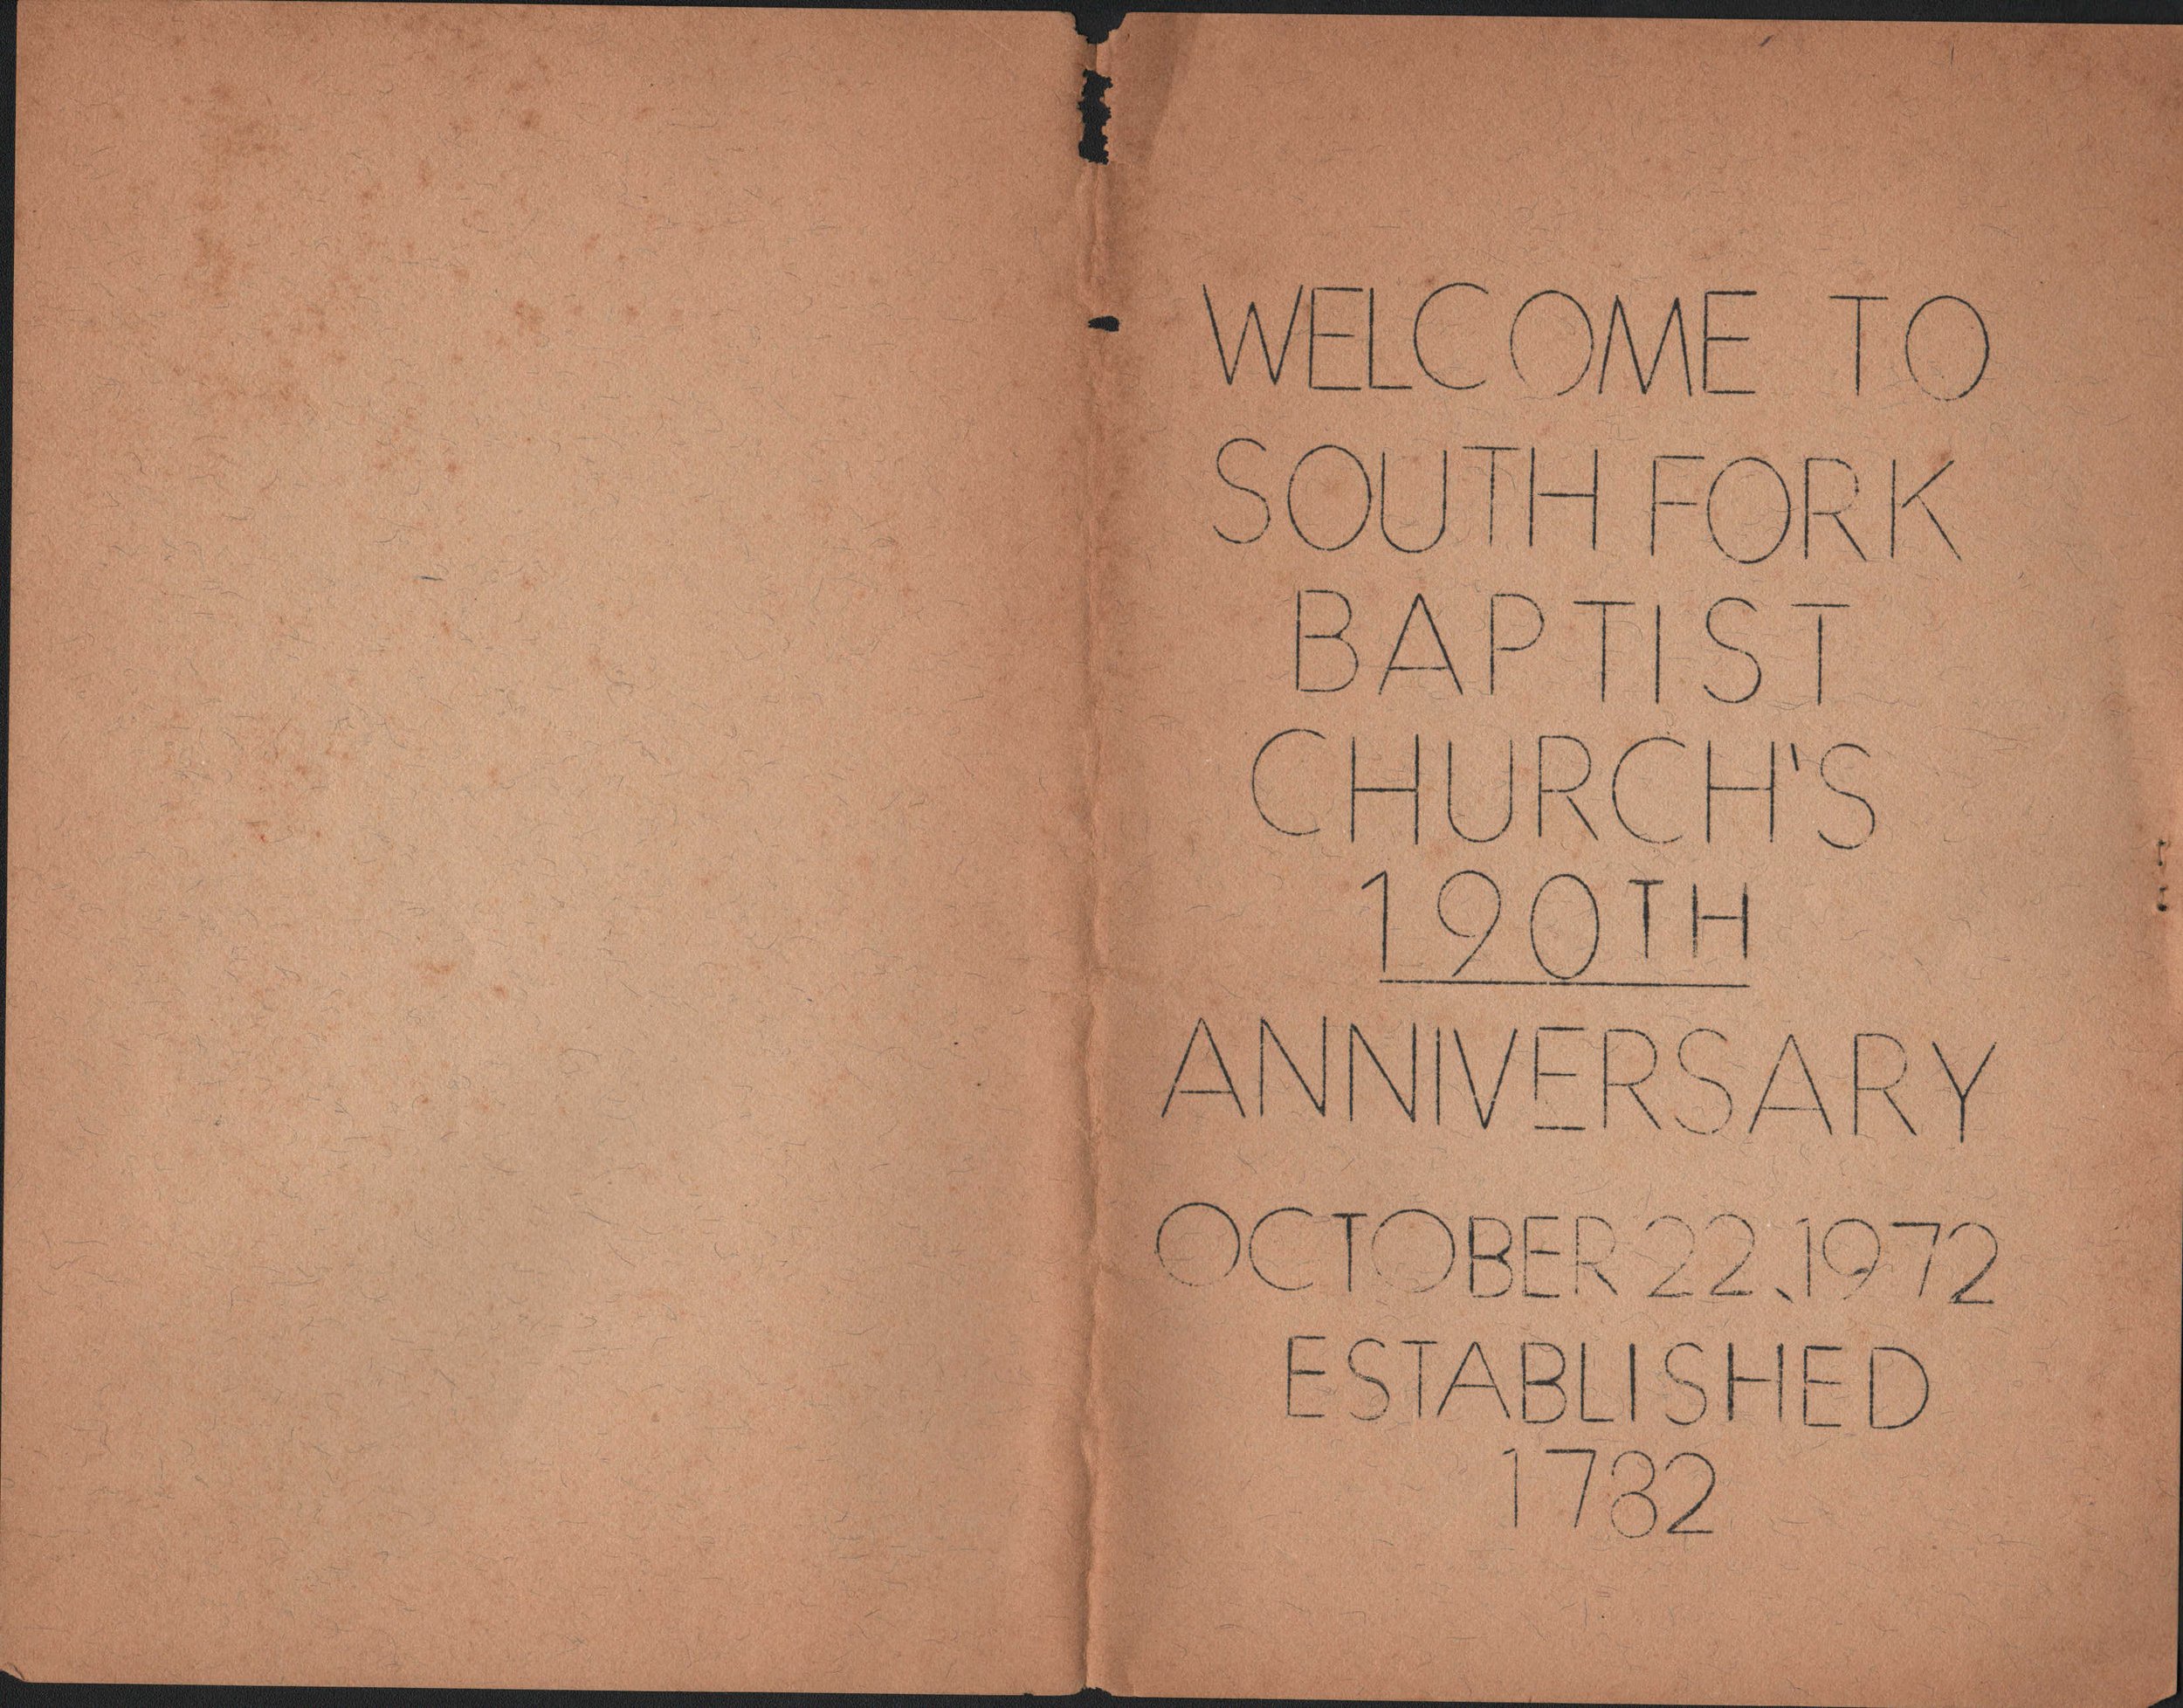 WELCOME TO
SOUTH FORK
BAPTIST
CHURCH'S
190TH
ANNIVERSARY
OCTOBER 22, 1972
ESTABLISHED
1782